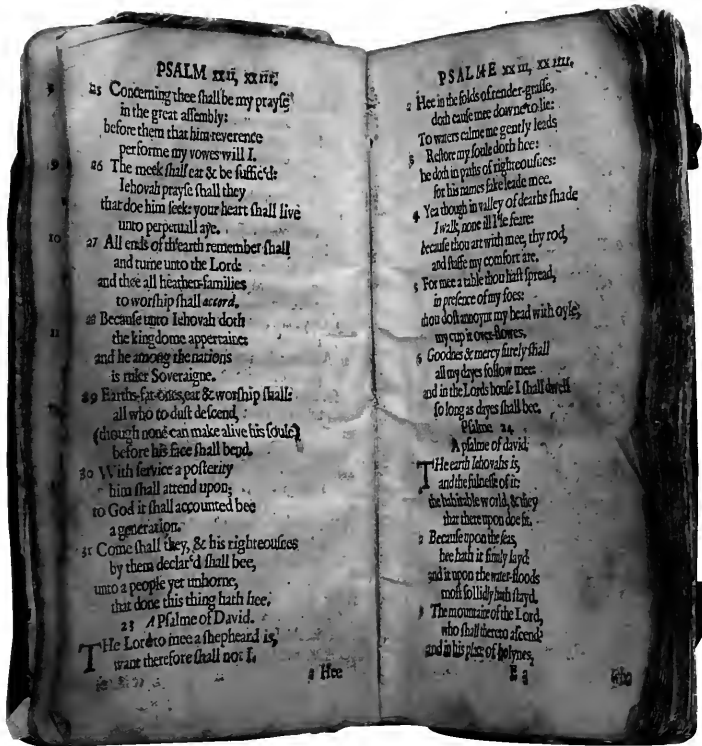 PSALM xxii, xxiii.
25 Concerning thee ſhall be my prayſe
in the great aſſembly:
before them that him reverence
performe my vowes will I.
26 The meek ſhall eat & be ſuffic'd:
Iehovah prayſe ſhall they
that doe him ſeek: your heart ſhall live
unto perpetuall aye.
27 All ends of th'earth remember ſhall
and turne unto the Lord:
and thee all heathen-families
to worſhip ſhall accord.
28 Becauſe unto Iehovah doth
the kingdome appertaine:
and he among the nations
is ruler Soveraigne.
29 Earths-fat-ones, eat & worſhip ſhall:
all who to duſt deſcend,
(though none can make alive his ſoule)
before his face ſhall bend.
30 With ſervice a poſterity
him ſhall attend upon;
to God it ſhall accounted bee
a generation.
31 Come ſhall they, & his righteouſnes
by them declar'd ſhall bee,
unto a people yet unborne,
that done this thing hath hee.
23 A Pſalme of David.
THe Lord to mee a ſhepheard is,
want therefore ſhall not I.
2 Hee
PSALME xxiii, xxiiii.
2 Hee in the folds of tender-graſſe,
doth cauſe mee downe to lie:
To waters calme me gently leads
3 Reſtore my ſoule doth hee:
he doth in paths of righteouſnes:
for his names ſake leade mee.
4 Yea though in valley of deaths ſhade
I walk, none ill I'le feare:
becauſe thou art with mee, thy rod,
and ſtaffe my comfort are.
5 For mee a table thou haſt ſpread,
in preſence of my foes:
thou doſt annoynt my head with oyle,
my cup it over-flowes.
6 Goodnes & mercy ſurely ſhall
all my dayes follow mee:
and in the Lords houſe I ſhall dwell
ſo long as dayes ſhall bee.
Pſalme 24
A pſalme of david.
THe earth Iehovahs is,
and the fulneſſe of it:
the habitable world, & they
that there upon doe ſit.
2 Becauſe upon the ſeas,
hee hath it firmly layd:
and it upon the water-floods
moſt ſollidly hath ſtayd.
3 The mountaine of the Lord,
who ſhall thereto aſcend?
and in his place of holynes,